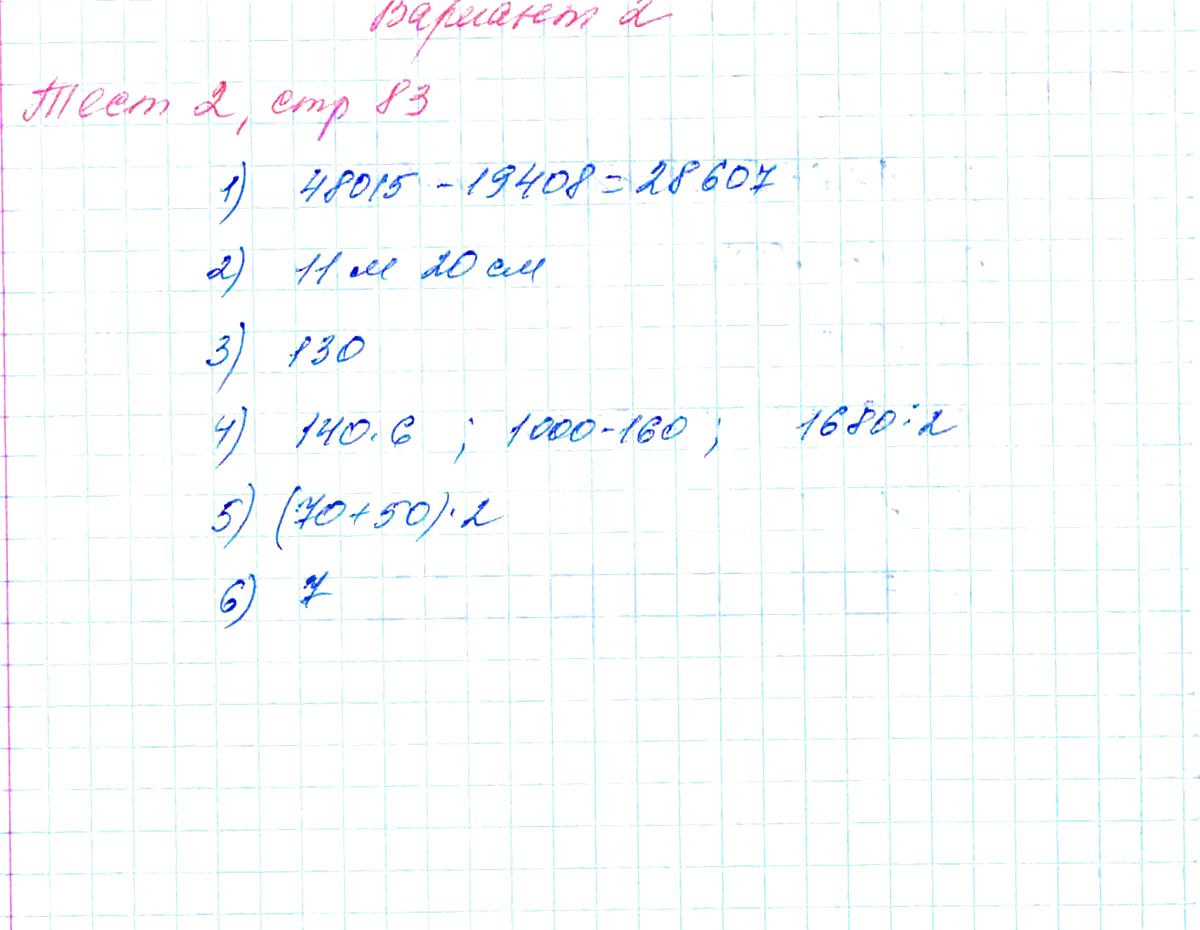 Вариант 2
Тест 2, стр 83
1) 48015 - 19408 = 28607
2) 11 м 20 см
3) 130
4) 140·6 ; 1000-160 ; 1680:2
5) (70+50)·2
6) 7